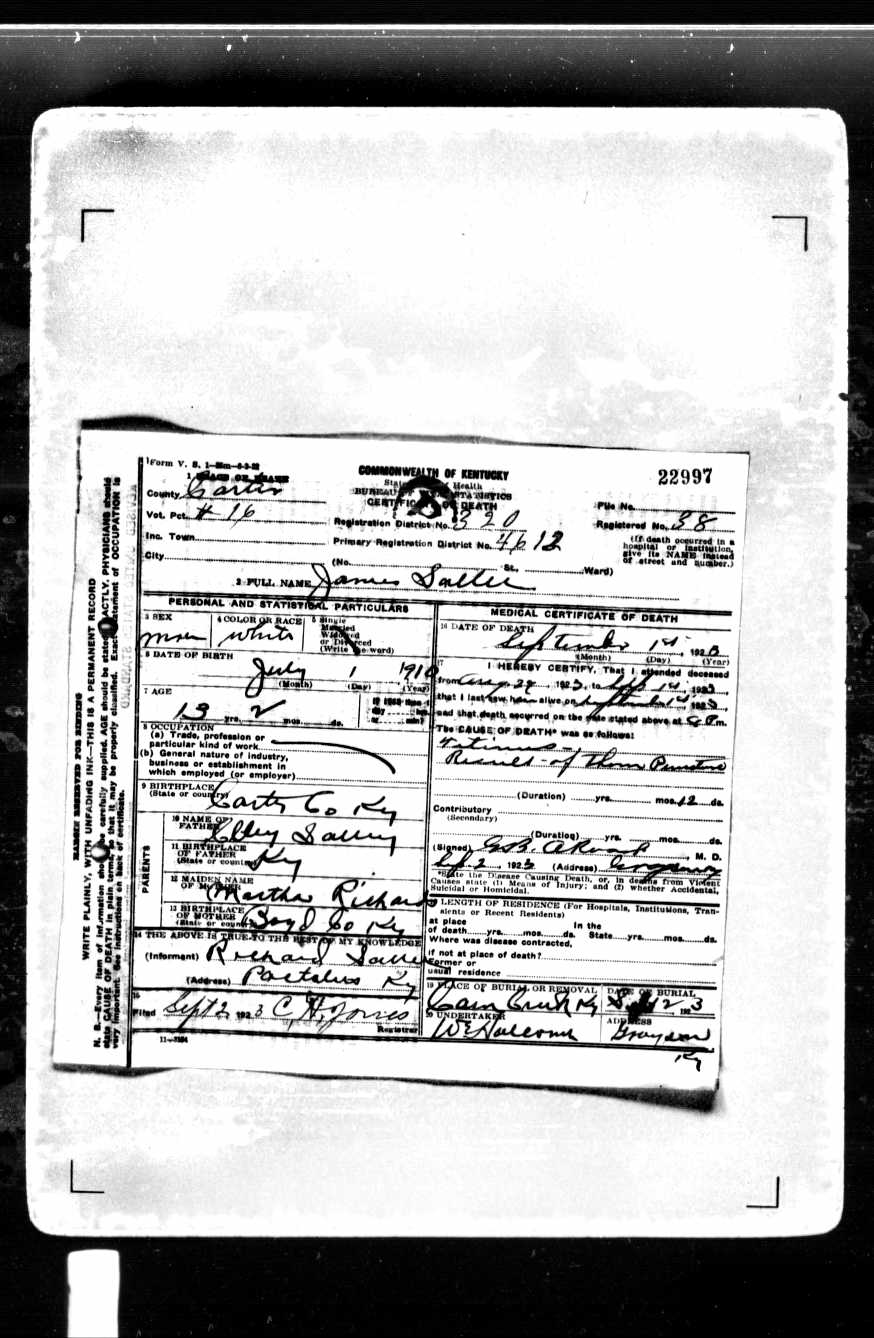 Form V. S. 1
COMMONWEALTH OF KENTUCKY
22997
1 PLACE OF DEATH
County Carter
CERTIFICATE OF DEATH
Vot. Pct. # 16
Registration District No. 320
File No.
Registered No. 38
Inc. Town
Primary Registration District No. 4612
(If death occurred in a
hospital or institution,
give its NAME instead
of street and number.)
City
(No. St., Ward)
2 FULL NAME James
PERSONAL AND STATISTICAL PARTICULARS
3 SEX
4 COLOR OR RACE white
5 Single
Married
Widowed
or Divorced
(Write the word)
6 DATE OF BIRTH
July 1 1910
(Month) (Day) (Year)
7 AGE
13 yrs. 2 mos. ds.
8 OCCUPATION
(a) Trade, profession or
particular kind of work
(b) General nature of industry,
business or establishment in
which employed (or employer)
9 BIRTHPLACE
(State or country) Carter Co Ky
PARENTS
10 NAME OF
FATHER
11 BIRTHPLACE
OF FATHER
(State or country) Ky
12 MAIDEN NAME
OF MOTHER Martha Richards
13 BIRTHPLACE
OF MOTHER
(State or country) Boyd Co Ky
14 THE ABOVE IS TRUE TO THE BEST OF MY KNOWLEDGE
(Informant) Richard
(Address) Ky
15
Filed Sept 2 1923 C. H. Jones
Registrar
11-3184
MEDICAL CERTIFICATE OF DEATH
16 DATE OF DEATH
September 1st, 1923
(Month) (Day) (Year)
17 I HEREBY CERTIFY, That I attended deceased
from Aug 29, 1923, to Sep 1st, 1923
that I last saw him alive on September 1st, 1923
and that death occurred on the date stated above at 8 P m.
The CAUSE OF DEATH* was as follows:
Result of Thorn Puncture
(Duration) yrs. mos. 12 ds.
Contributory
(Secondary)
(Duration) yrs. mos. ds.
(Signed) G.B. M. D.
Sep 2, 1923 (Address)
*State the Disease Causing Death, or, in deaths from Violent
Causes state (1) Means of Injury; and (2) whether Accidental,
Suicidal or Homicidal.
LENGTH OF RESIDENCE (For Hospitals, Institutions, Tran-
sients or Recent Residents)
at place In the
of death yrs. mos. ds. State yrs. mos. ds.
Where was disease contracted,
if not at place of death?
Former or
usual residence
19 PLACE OF BURIAL OR REMOVAL DATE OF BURIAL
Ky 2, 1923
20 UNDERTAKER ADDRESS
Grayson
Ky
MARGIN RESERVED FOR BINDING
WRITE PLAINLY, WITH UNFADING INK—THIS IS A PERMANENT RECORD
N. B.—Every item of information should be carefully supplied. AGE should be stated EXACTLY. PHYSICIANS should
state CAUSE OF DEATH in plain terms, so that it may be properly classified. Exact statement of OCCUPATION is
very important. See instructions on back of certificate.